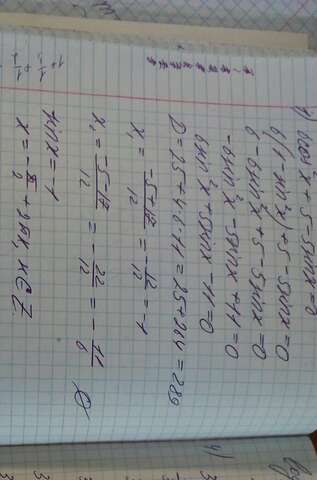 6cos²x + 5 - 5sinx = 0
6(1 - sin²x) + 5 - 5sinx = 0
6 - 6sin²x + 5 - 5sinx = 0
-6sin²x - 5sinx + 11 = 0
6sin²x + 5sinx - 11 = 0
D = 25 + 4·6·11 = 25 + 264 = 289
x₁ = (-5+17)/12 = -12/12 = -1
x₁ = (-5-17)/12 = -22/12 = -11/6 ∅
sin x = -1
x = -π/2 + 2πk, k∈Z.
4)